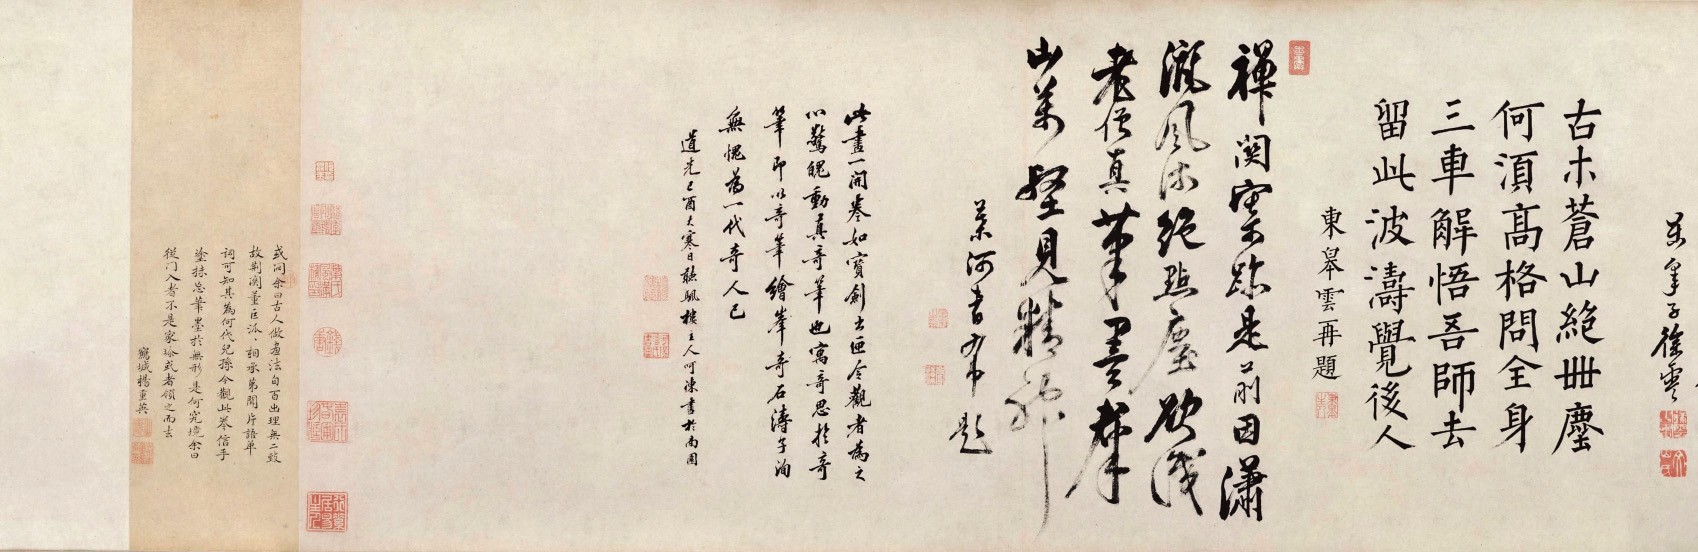 子徐雲
古木蒼山絕丗塵
何湏高格問全身
三車解悟吾師去
留此波濤覺後人
東皋雲再題
禪關寄跡是前因瀟
灑風流絕點塵欲識
老僧真筆墨羣
山萬壑見精神
河書題
此畫一開卷如寶劍出匣令觀者為之
心驚魄動真奇筆也寓奇思於奇
筆即以奇筆繪峯奇石濤乎洵
無愧為一代奇人已
道光己酉大寒日聽颿樓主人呵凍書於南園
或問余曰古人做畫法自百出理無二致
故荊關董巨派相承第聞片語單
詞可知其為何代兒孫今觀此卷信手
塗抹忘筆墨於無形是何究境余曰
從門入者不是家珍或者領之而去
鶴城楊重英